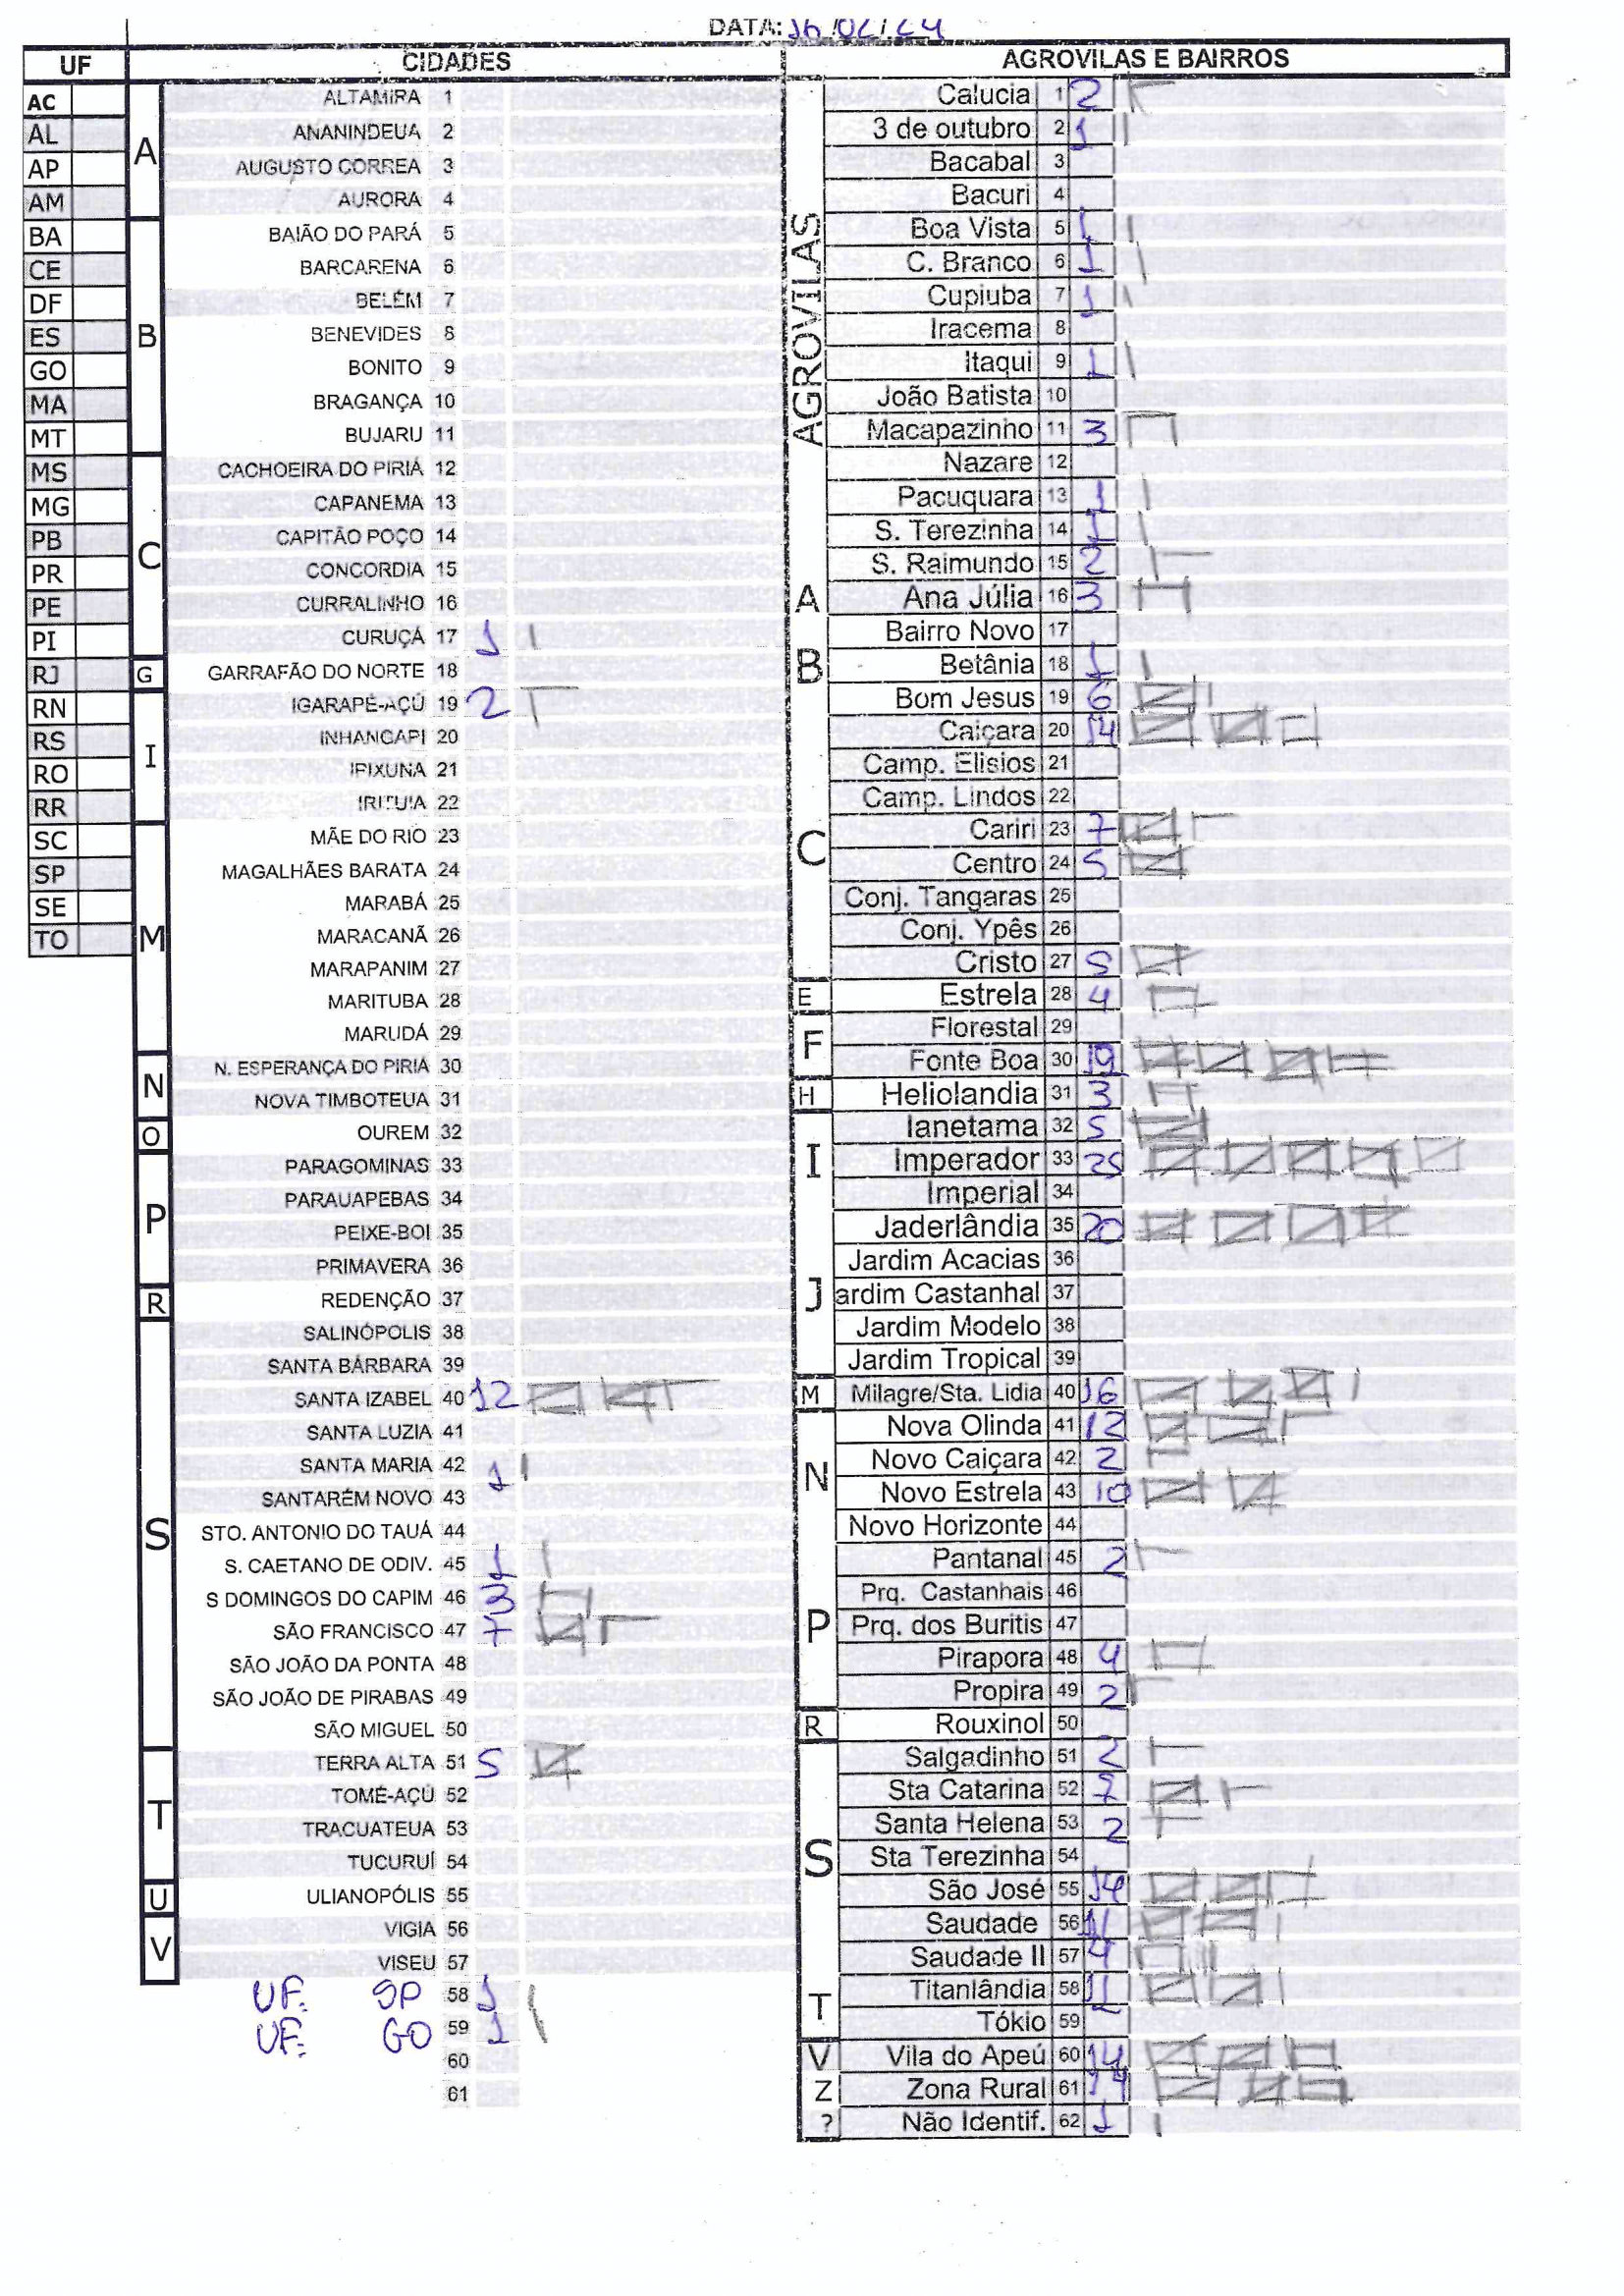 DATA: 16/02/24
UF CIDADES AGROVILAS E BAIRROS
AC
AL
AP
AM
BA
CE
DF
ES
GO
MA
MT
MS
MG
PB
PR
PE
PI
RJ
RN
RS
RO
RR
SC
SP
SE
TO
A
ALTAMIRA 1
ANANINDEUA 2
AUGUSTO CORREA 3
AURORA 4
B
BAIÃO DO PARÁ 5
BARCARENA 6
BELÉM 7
BENEVIDES 8
BONITO 9
BRAGANÇA 10
BUJARU 11
C
CACHOEIRA DO PIRIÁ 12
CAPANEMA 13
CAPITÃO POÇO 14
CONCORDIA 15
CURRALINHO 16
CURUÇÁ 17 1
G
GARRAFÃO DO NORTE 18
I
IGARAPÉ-AÇÚ 19 2
INHANGAPI 20
IPIXUNA 21
IRITUIA 22
M
MÃE DO RIO 23
MAGALHÃES BARATA 24
MARABÁ 25
MARACANÃ 26
MARAPANIM 27
MARITUBA 28
MARUDÁ 29
N
N. ESPERANÇA DO PIRIÁ 30
NOVA TIMBOTEUA 31
O
OUREM 32
P
PARAGOMINAS 33
PARAUAPEBAS 34
PEIXE-BOI 35
PRIMAVERA 36
R
REDENÇÃO 37
S
SALINÓPOLIS 38
SANTA BÁRBARA 39
SANTA IZABEL 40 12
SANTA LUZIA 41
SANTA MARIA 42 1
SANTARÉM NOVO 43
STO. ANTONIO DO TAUÁ 44
S. CAETANO DE ODIV. 45 1
S DOMINGOS DO CAPIM 46 3
SÃO FRANCISCO 47 7
SÃO JOÃO DA PONTA 48
SÃO JOÃO DE PIRABAS 49
SÃO MIGUEL 50
T
TERRA ALTA 51 5
TOMÉ-AÇÚ 52
TRACUATEUA 53
TUCURUÍ 54
U
ULIANOPÓLIS 55
V
VIGIA 56
VISEU 57
UF: SP 58 1
UF: GO 59 1
60
61
AGROVILAS
Calucia 1 2
3 de outubro 2 1
Bacabal 3
Bacuri 4
Boa Vista 5 1
C. Branco 6 1
Cupiuba 7 1
Iracema 8
Itaqui 9 1
João Batista 10
Macapazinho 11 3
Nazare 12
Pacuquara 13 1
S. Terezinha 14 1
S. Raimundo 15 2
A
Ana Júlia 16 3
B
Bairro Novo 17
Betânia 18 1
Bom Jesus 19 6
C
Caiçara 20 14
Camp. Elisios 21
Camp. Lindos 22
Cariri 23 7
Centro 24 5
Conj. Tangaras 25
Conj. Ypês 26
Cristo 27 5
E
Estrela 28 4
F
Florestal 29
Fonte Boa 30 19
H
Heliolandia 31 3
I
Ianetama 32 5
Imperador 33 25
Imperial 34
J
Jaderlândia 35 20
Jardim Acacias 36
ardim Castanhal 37
Jardim Modelo 38
Jardim Tropical 39
M
Milagre/Sta. Lidia 40 16
N
Nova Olinda 41 12
Novo Caiçara 42 2
Novo Estrela 43 10
Novo Horizonte 44
P
Pantanal 45 2
Prq. Castanhais 46
Prq. dos Buritis 47
Pirapora 48 4
Propira 49 2
R
Rouxinol 50
S
Salgadinho 51 2
Sta Catarina 52 7
Santa Helena 53 2
Sta Terezinha 54
São José 55 14
Saudade 56 11
Saudade II 57 4
T
Titanlândia 58 11
Tókio 59
V
Vila do Apeú 60 14
Z
Zona Rural 61 14
?
Não Identif. 62 1